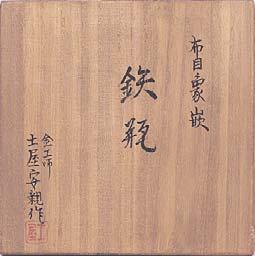 布目象嵌
鉄瓶
金工師
土屋安親作